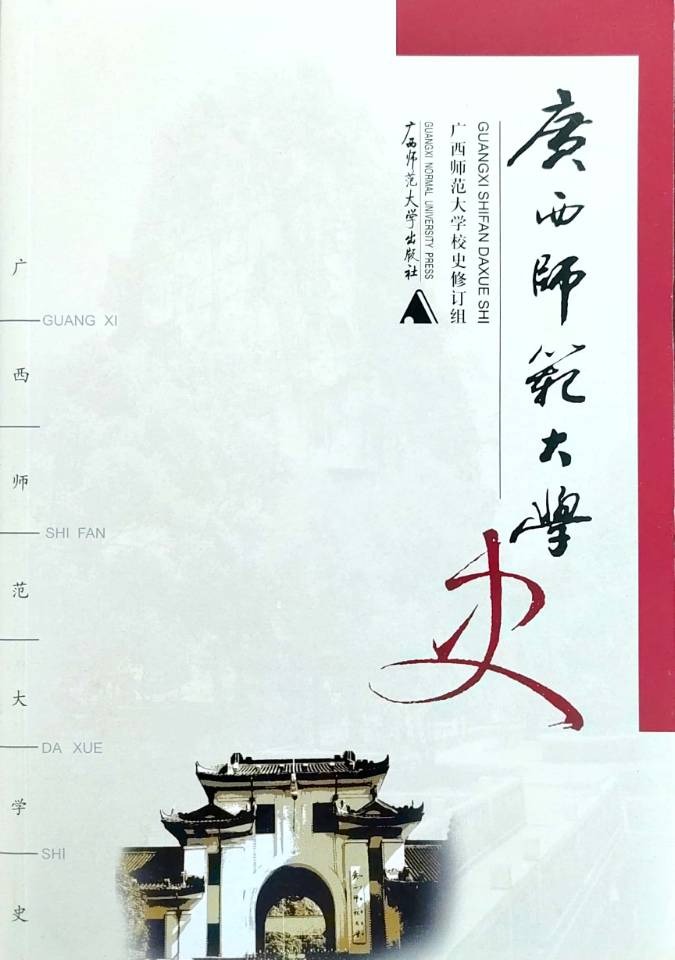 廣西師範大學
史
GUANGXI SHIFAN DAXUE SHI
广西师范大学校史修订组
GUANGXI NORMAL UNIVERSITY PRESS
广西师范大学出版社
广
GUANG XI
西
师
SHI FAN
范
大
DA XUE
学
SHI
史